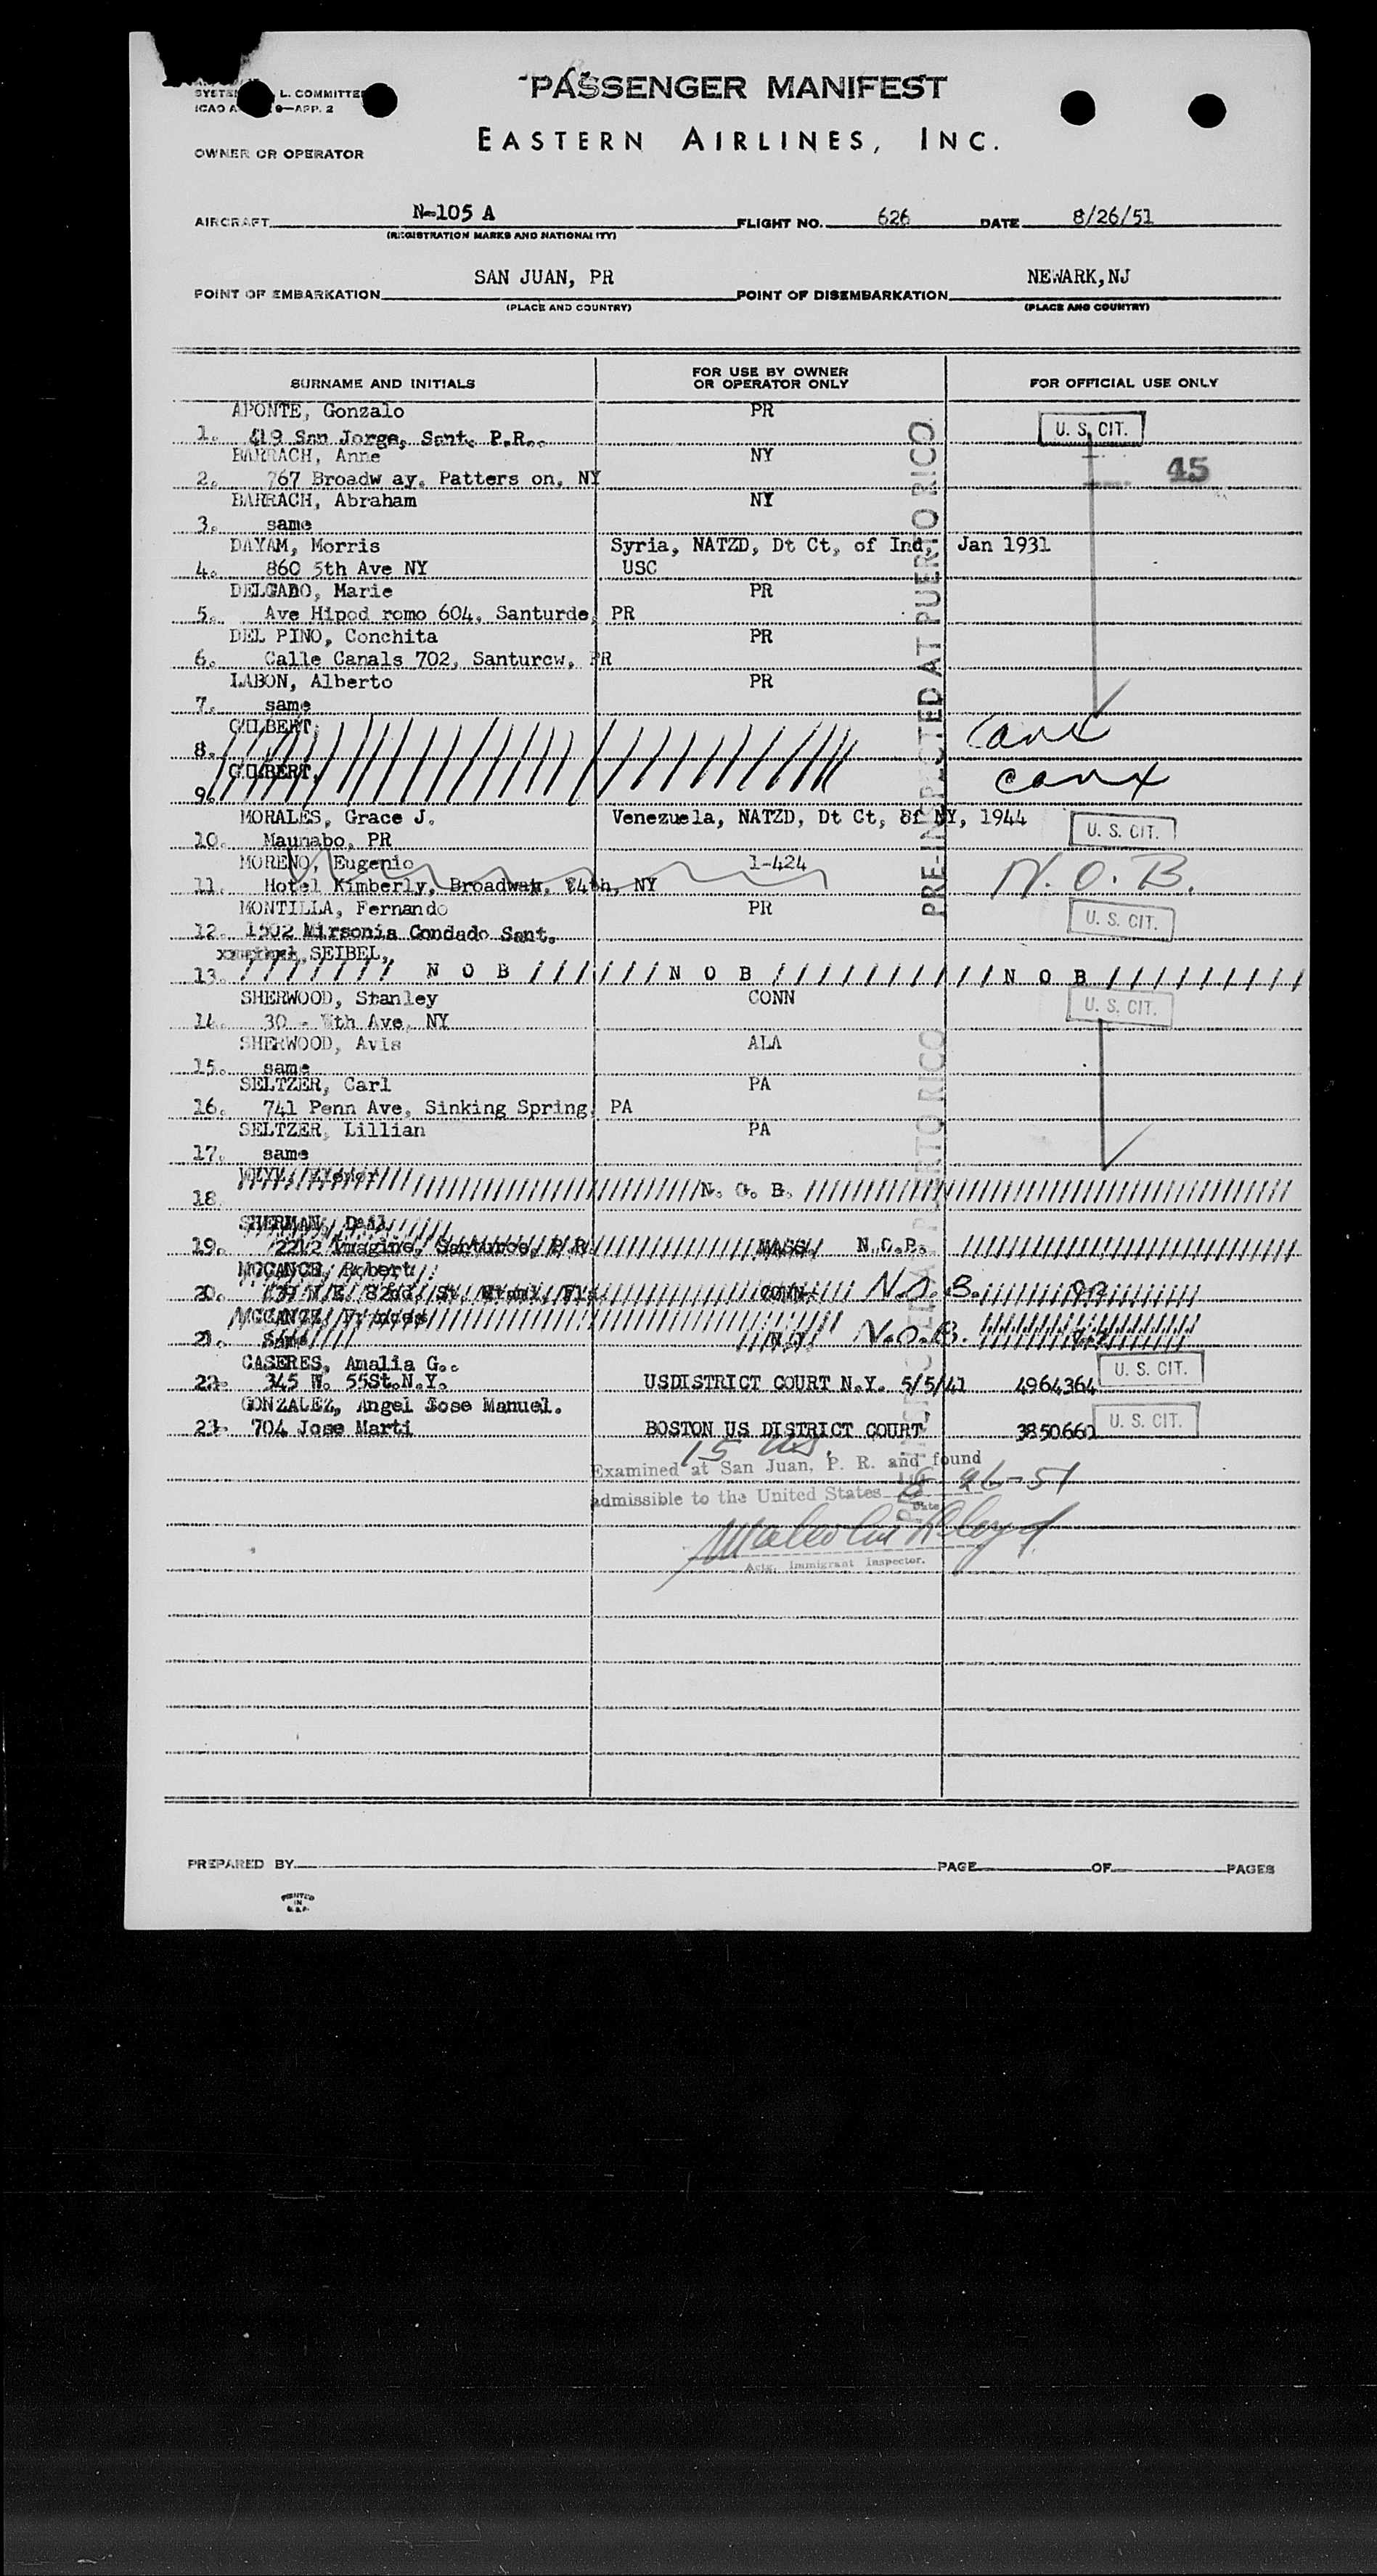 PASSENGER MANIFEST
L. COMMITTEE
9—APP. 2
EASTERN AIRLINES, INC.
OWNER OR OPERATOR
AIRCRAFT N-105 A FLIGHT NO. 626 DATE 8/26/51
(REGISTRATION MARKS AND NATIONALITY)
SAN JUAN, PR NEWARK,NJ
POINT OF EMBARKATION POINT OF DISEMBARKATION
(PLACE AND COUNTRY) (PLACE AND COUNTRY)
SURNAME AND INITIALS FOR USE BY OWNER OR OPERATOR ONLY FOR OFFICIAL USE ONLY
APONTE, Gonzalo PR
1. 419 San Jorge, Sant. P.R. U. S. CIT.
BARRACH, Anne NY 45
2. 767 Broadw ay. Patters on, NY
BARRACH, Abraham NY
3. same
DAYAM, Morris Syria, NATZD, Dt Ct, of Ind, Jan 1931
4. 860 5th Ave NY USC
DELGADO, Marie PR
5. Ave Hipod romo 604, Santurde, PR
DEL PINO, Conchita PR
6. Calle Canals 702, Santurcw, PR
LABON, Alberto PR
7. same
GILBERT, Canx
8.
GILBERT, canx
9.
MORALES, Grace J. Venezuela, NATZD, Dt Ct, 8f NY, 1944
10. Maunabo, PR U. S. CIT.
MORENO, Eugenio 1-424
11. Hotel Kimberly, Broadway, 74th, NY N.O.B.
MONTILLA, Fernando PR U. S. CIT.
12. 1502 Mirsonia Condado Sant.
SEIBEL,
13. / / / / / / / N O B / / / / / / / N O B / / / / / / / / / / N O B / / / / / / / / /
SHERWOOD, Stanley CONN U. S. CIT.
14. 30 - th Ave, NY
SHERWOOD, Avis ALA
15. same
SELTZER, Carl PA
16. 741 Penn Ave, Sinking Spring, PA
SELTZER, Lillian PA
17. same
18. N. O. B.
SHERMAN, Dail
19. 2212 Imagine, Santurce, P.R. MASS. N.O.B.
MCCANCE, Robert
20. 439 N.E. 82nd. St. Miami, Fla CONN N.O.B.
MCCANCE, Frances
21. same N.J. N.O.B.
CASERES, Amalia G.
22. 345 W. 55St.N.Y. USDISTRICT COURT N.Y. 5/5/41 4964364 U. S. CIT.
GONZALEZ, Angel Jose Manuel.
23. 704 Jose Marti BOSTON US DISTRICT COURT 3850660 U. S. CIT.
15 US.
Examined at San Juan, P. R. and found
admissible to the United States 26-51
Date
Malcolm Lloyd
Actg. Immigrant Inspector.
PRE-INSPECTED AT PUERTO RICO
PRE-INSPECTED AT PUERTO RICO
PREPARED BY PAGE OF PAGES
PRINTED
IN
U.S.A.